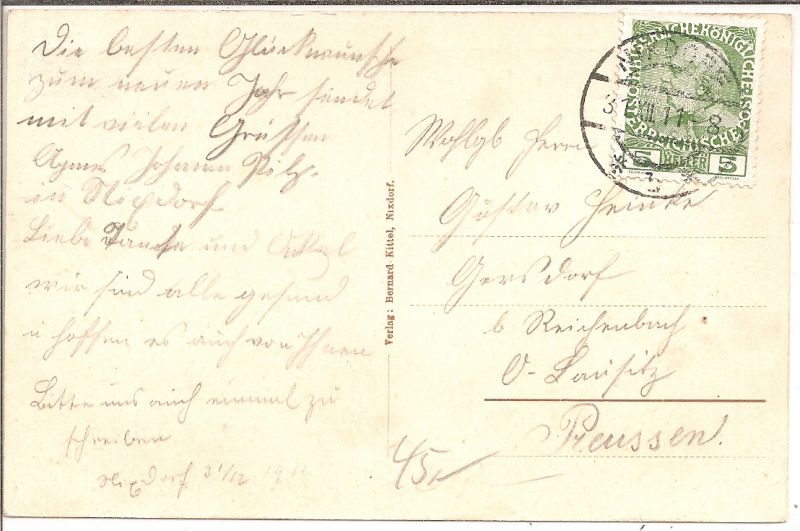 Die besten Glückwünsche
zum neuen Jahr sendet
mit vielen Grüssen
Agnes Johann Pilz.
in Nixdorf.
Liebe Tante und Onkel
wir sind alle gesund
u hoffen es auch von Ihnen
Bitte uns auch einmal zu
schreiben
Nixdorf 31/12 1911
Verlag: Bernard Kittel, Nixdorf.
KAISERLICHEKÖNIGLICHE
ÖSTERREICHISCHE
5 HELLER 5
31 XII 11 8
Wohlgb Herrn
Gustav Heinke
Gersdorf
b Reichenbach
O-Lausitz
Preussen.
45